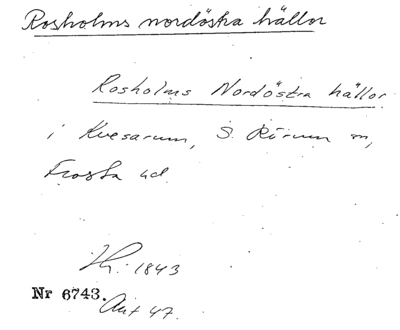 Rosholms nordöstra hällor
Rosholms Nordöstra hällor
i Kvesarum, S. Rörum sn,
Frosta hd.
1843
Nr 6743.
Ant 47.